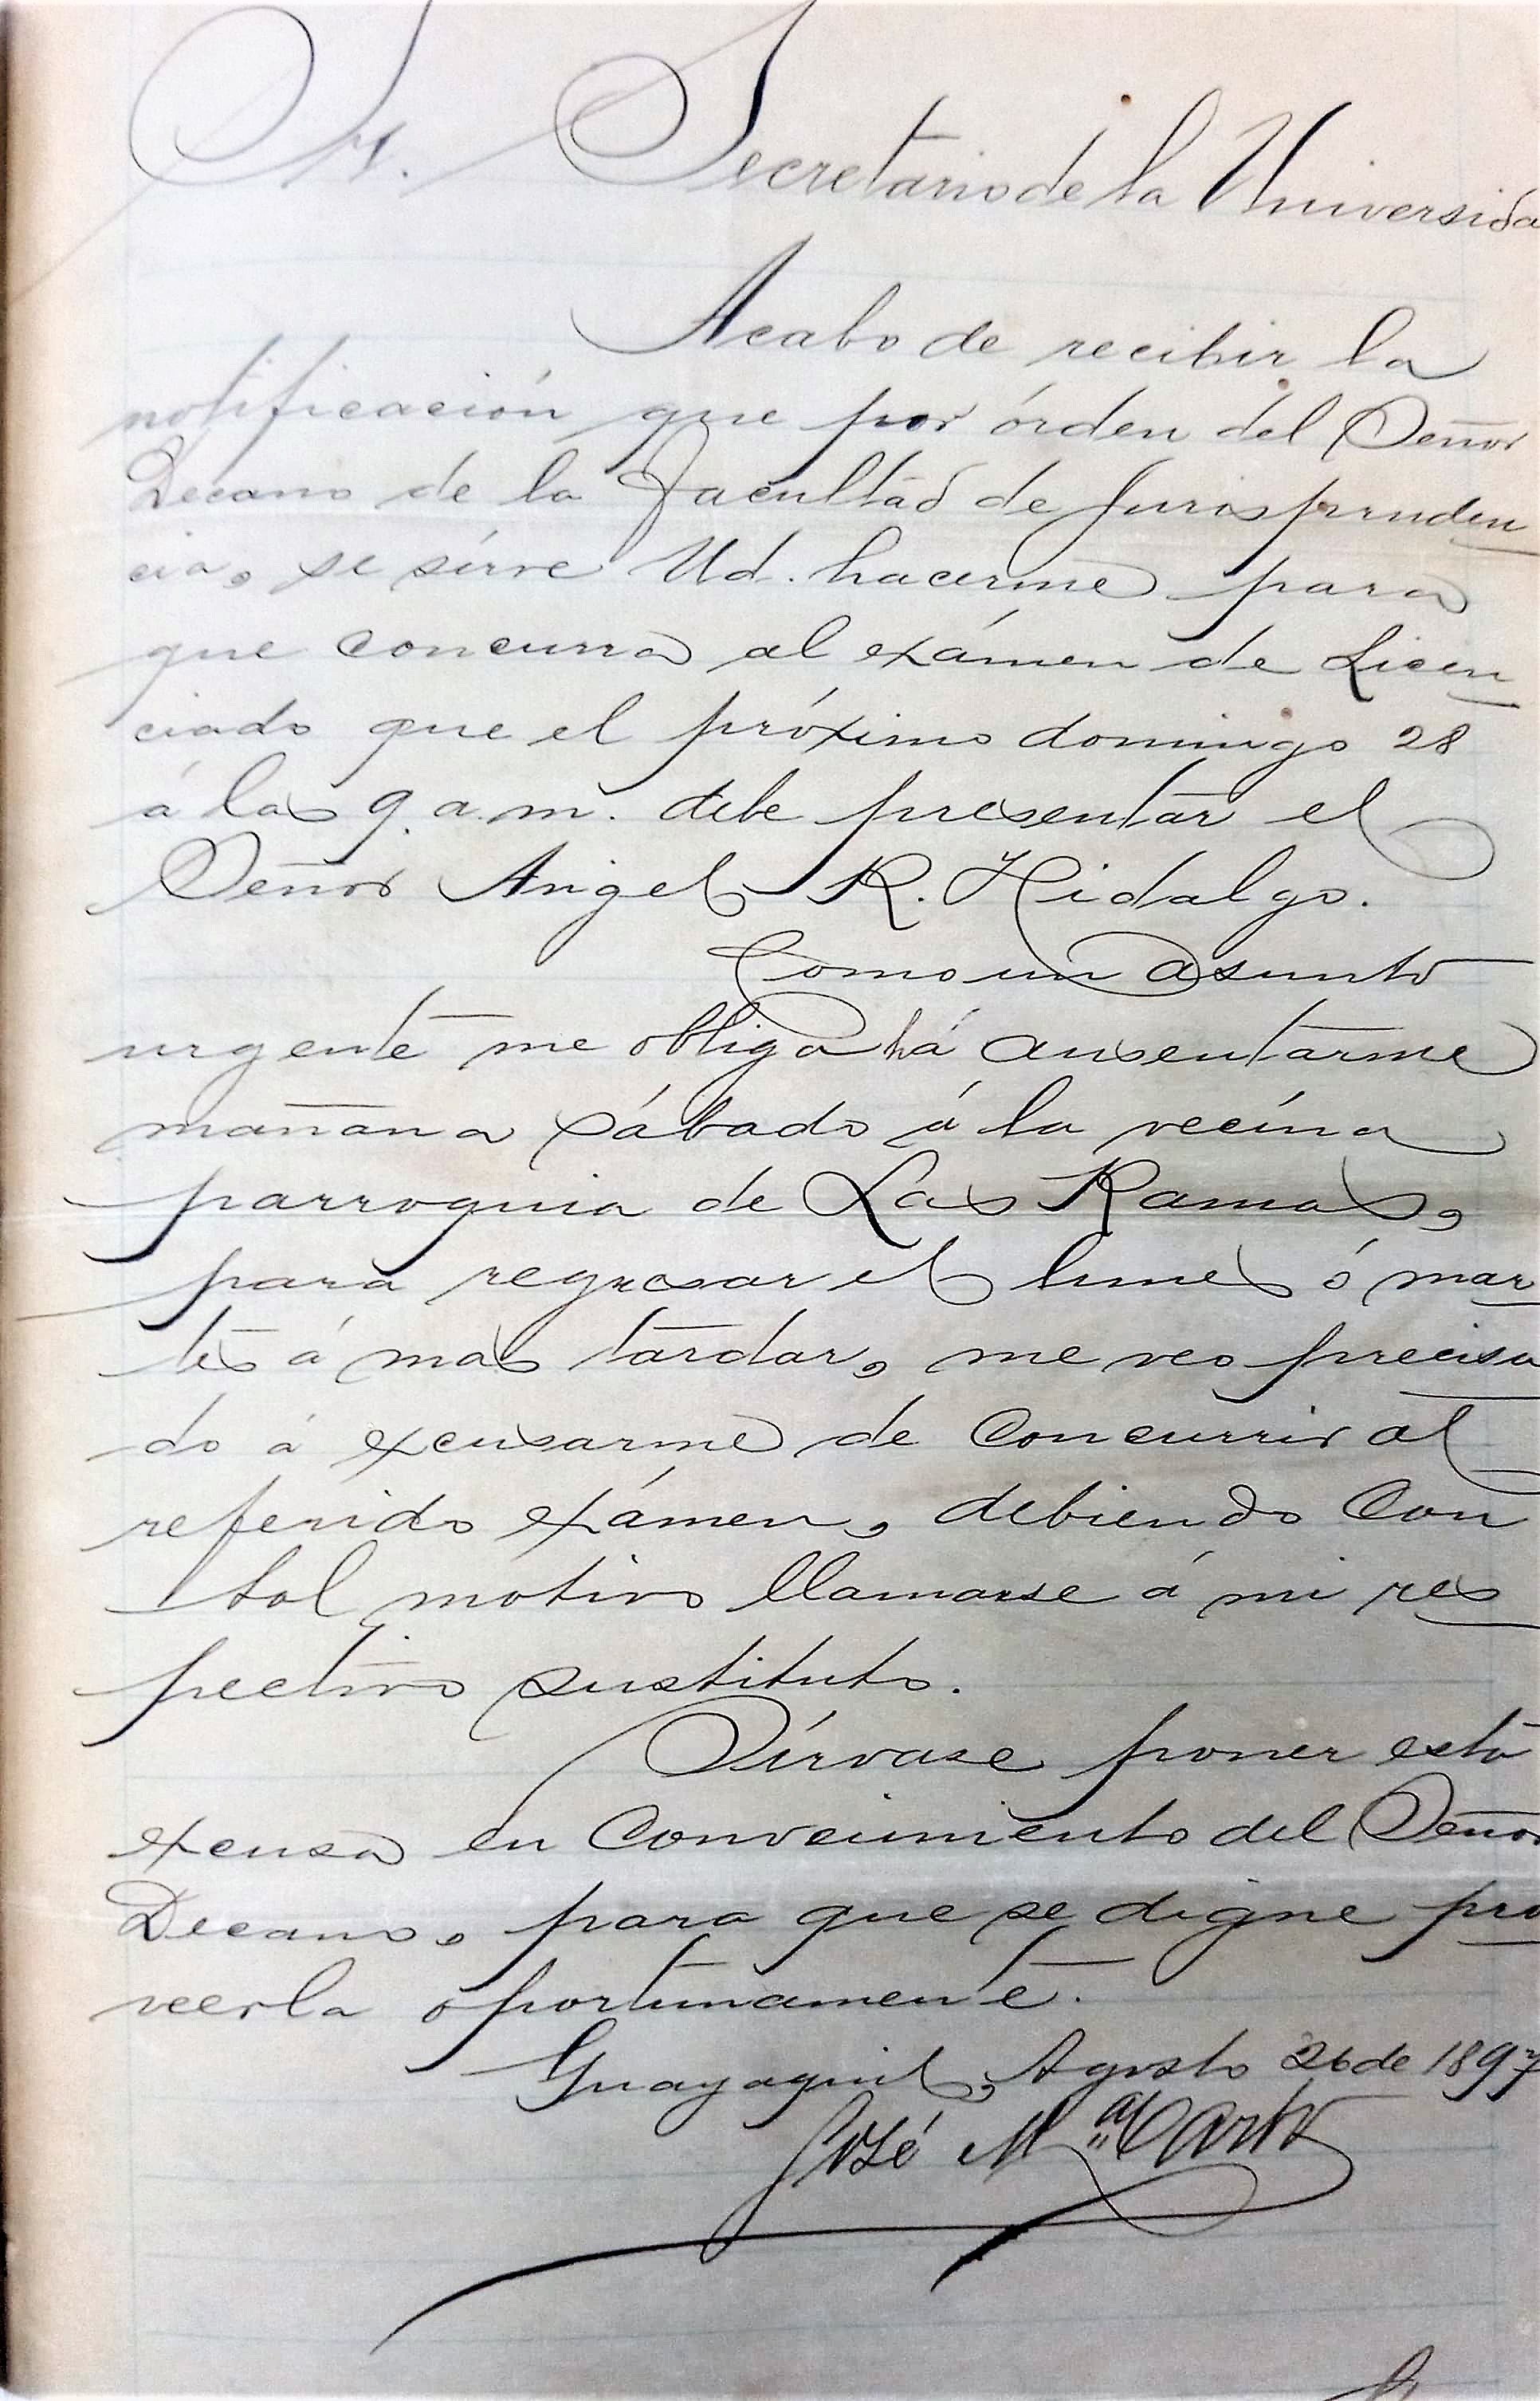 Sr. Secretario de la Universida
Acabo de recibir la
notificación que por órden del Señor
Decano de la Facultad de Jurispruden
cia, se sirve Ud. hacerme para
que concurra al exámen de Licen
ciado que el próximo domingo 28
á las 9. a.m. debe presentar el
Señor Angel R. Hidalgo.
Como un asunto
urgente me obliga há ausentarme
mañana sábado á la vecina
parroquia de Las Ramas,
para regresar el lunes ó mar
tes á mas tardar, me veo precisa
do á excusarme de concurrir al
referido exámen, debiendo con
tal motivo llamarse á mi res
pectivo sustituto.
Sírvase poner esta
excusa en conocimiento del Señor
Decano, para que se digne pro
veerla oportunamente.
Guayaquil, Agosto 26 de 1897
José Ma.